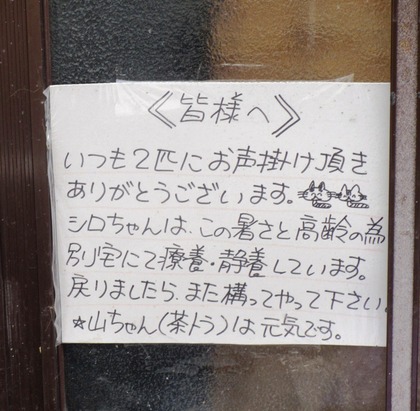 《皆様へ》
いつも2匹にお声掛け頂き
ありがとうございます。
シロちゃんは、この暑さと高齢の為
別宅にて療養・静養しています。
戻りましたら、また構ってやって下さい。
☆山ちゃん(茶トラ)は元気です。